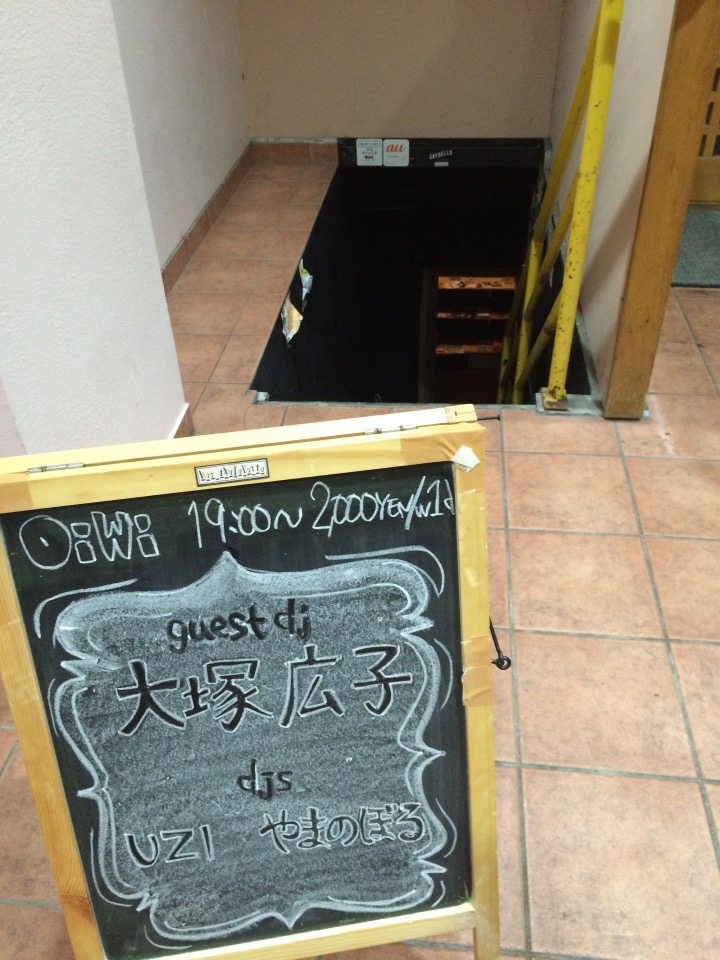 au
OiWi 19:00〜 2,000YEN/W1d
guest dj
大塚 広子
djs
UZI やまのぼる